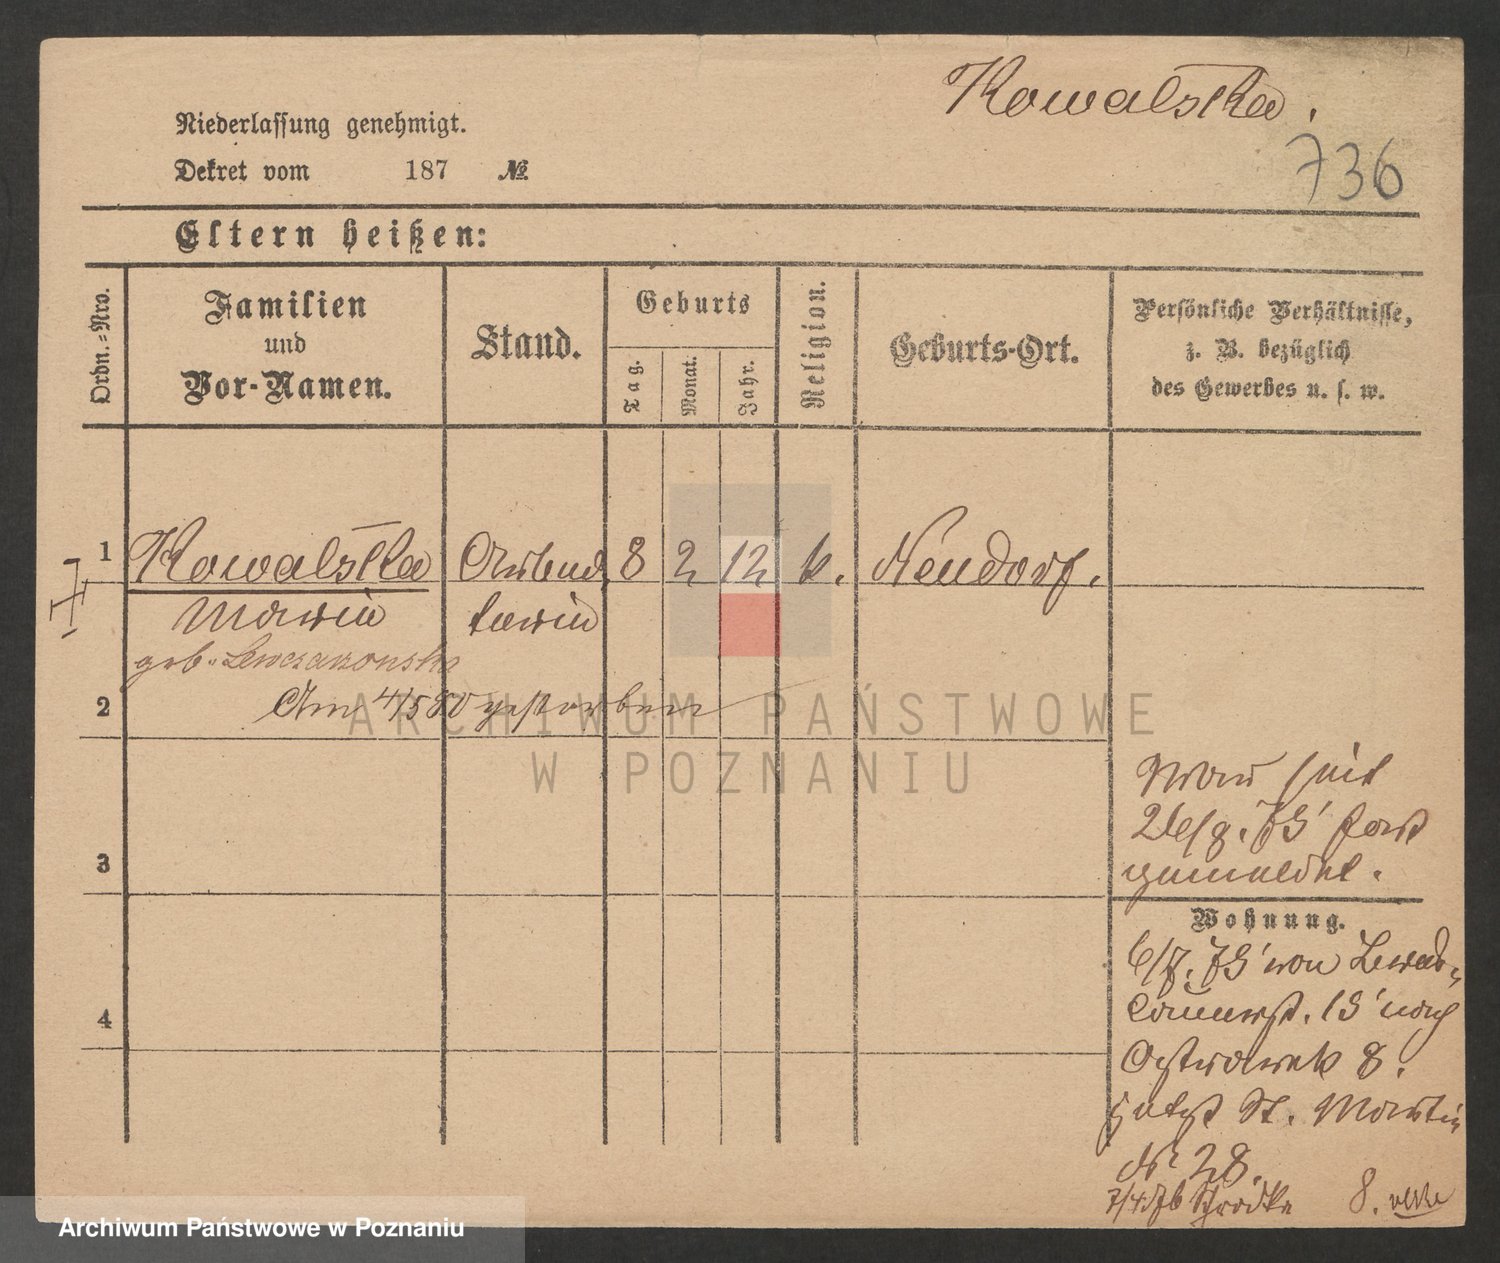 Kowalska.
736
Niederlassung genehmigt.
Dekret vom 187 №
Eltern heißen:
Ordn.-Nro.
Familien
und
Vor-Namen.
Stand.
Geburts
Tag.
Monat.
Jahr.
Religion.
Geburts-Ort.
Persönliche Verhältnisse,
z. B. bezüglich
des Gewerbes u. s. w.
1 Kowalska Arbeits 8 2 12 k. Neudorf.
Maria
geb.
2 Am 4/5 80 gestorben
War seit
fort
gemeldet.
3
Wohnung.
von
4
nach
Ostrowek 8.
jetzt St. Martin
Nr 28.
Schrodka 8.
ARCHIWUM PAŃSTWOWE
W POZNANIU
Archiwum Państwowe w Poznaniu